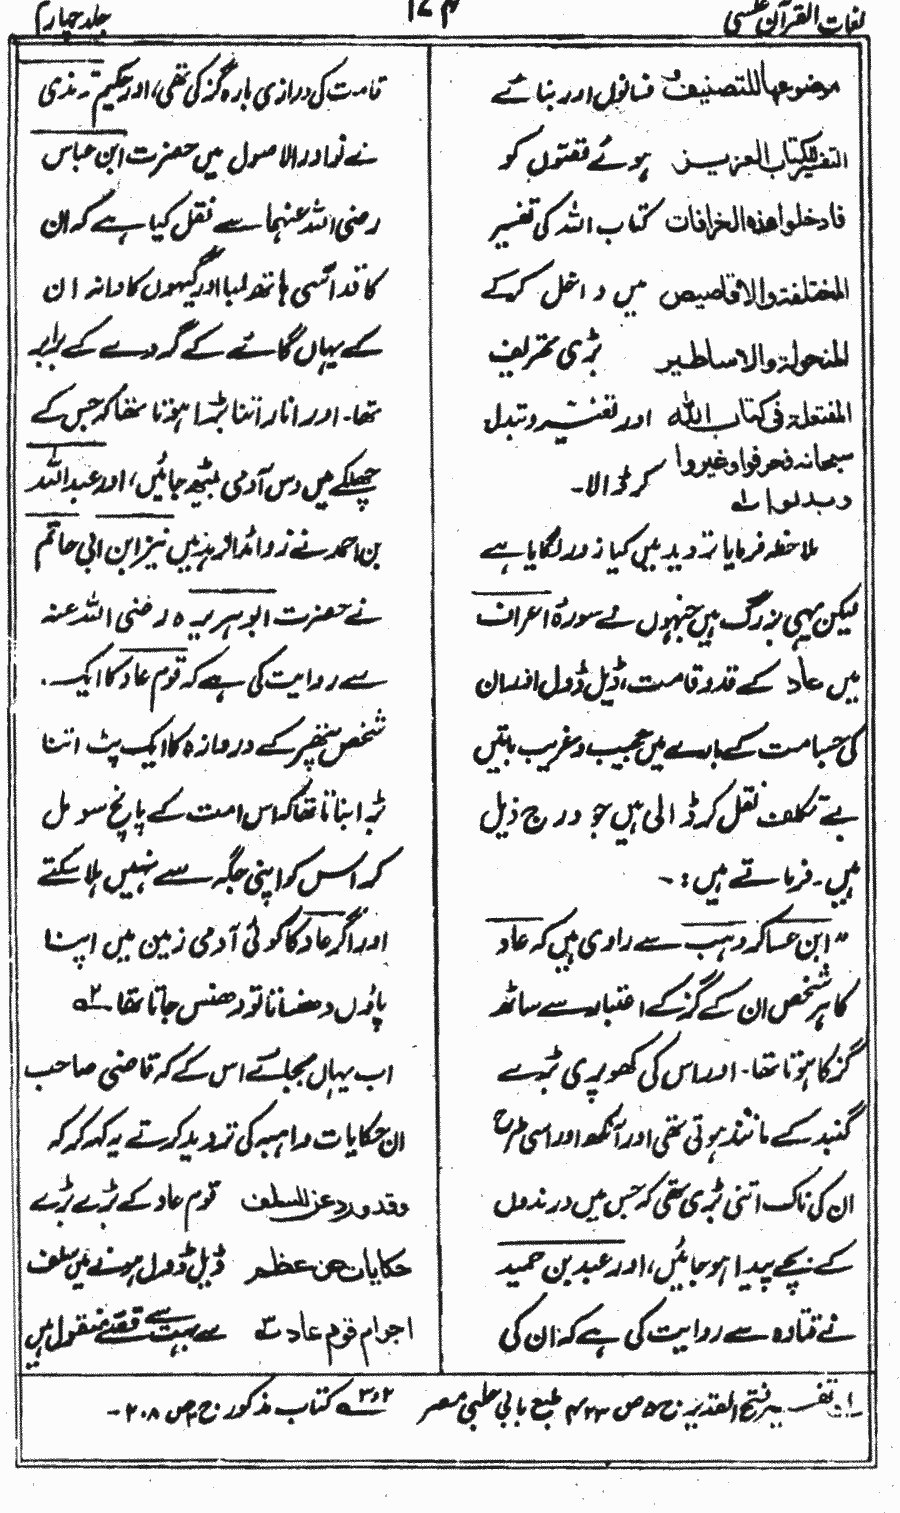 لغات القرآن عکسی
۱۷۴
جلد چہارم
موضوعها للتصنيف فسانوں اور بنائے
التفسير الكتاب العزيز ہوئے قصّوں کو
فادخلوا هذه الخرافات کتاب اللہ کی تفسیر
المختلفة والاقاصيص میں داخل کرکے
المنحولة والاساطير بڑی تحریف
المفتعلة في كتاب الله اور تغیر و تبدل
سبحانه فحرفوا وغيروا کر ڈالا۔
وبدلوا لہ
ملاحظہ فرمایا تردید میں کیا زور لگایا ہے
لیکن یہی بزرگ ہیں جنہوں نے سورۂ اعراف
میں عاد کے قد و قامت، ڈیل ڈول اور ان
کی جسامت کے بارے میں عجیب و غریب باتیں
بے تکلف نقل کر ڈالی ہیں جو درج ذیل
ہیں۔ فرماتے ہیں:۔
"ابن عساکر وہب سے راوی ہیں کہ عاد
کا ہر شخص ان کے گز کے اعتبار سے ساٹھ
گز کا ہوتا تھا۔ اور اس کی کھوپری بڑے
گنبد کے مانند ہوتی تھی اور آنکھ اور اسی طرح
ان کی ناک اتنی بڑی تھی کہ جس میں درندوں
کے بچے پیدا ہو جائیں، اور عبد بن حمید
نے قتادہ سے روایت کی ہے کہ ان کی
قامت کی درازی بارہ گز کی تھی، اور حکیم ترمذی
نے نوادر الاصول میں حضرت ابن عباس
رضی اللہ عنہما سے نقل کیا ہے کہ ان
کا قد اسّی ہاتھ لمبا اور گیہوں کا دانہ ان
کے یہاں گائے کے گردے کے برابر
تھا۔ اور انار اتنا بڑا ہوتا تھا کہ جس کے
چھلکے میں دس آدمی بیٹھ جائیں، اور عبد اللہ
بن احمد نے زوائد الزہد میں نیز ابن ابی حاتم
نے حضرت ابو ہریرہ رضی اللہ عنہ
سے روایت کی ہے کہ قوم عاد کا ایک
شخص پتھر کے دروازہ کا ایک پٹ اتنا
بڑا بناتا تھا کہ اس امت کے پانچ سو مل
کر اس کو اپنی جگہ سے نہیں ہلا سکتے
اور اگر عاد کا کوئی آدمی زمین میں اپنا
پاؤں دھنساتا تو دھنس جاتا تھا۔ ۲ہ
اب یہاں بجائے اس کے کہ قاضی صاحب
ان حکایات واہیہ کی تردید کرتے یہ کہہ کر کہ
وقد ورد عن السلف قوم عاد کے بڑے بڑے
حكايات عن عظم ڈیل ڈول ہونے میں سلف
اجرام قوم عاد ۳ہ سے بہت سے قصّے منقول ہیں
۱ہ تفسیر فتح القدیر ج ۵ ص ۴۲۳ طبع بابی حلبی مصر ۲ و ۳ہ کتاب مذکور ج ۲ ص ۲۰۸۔